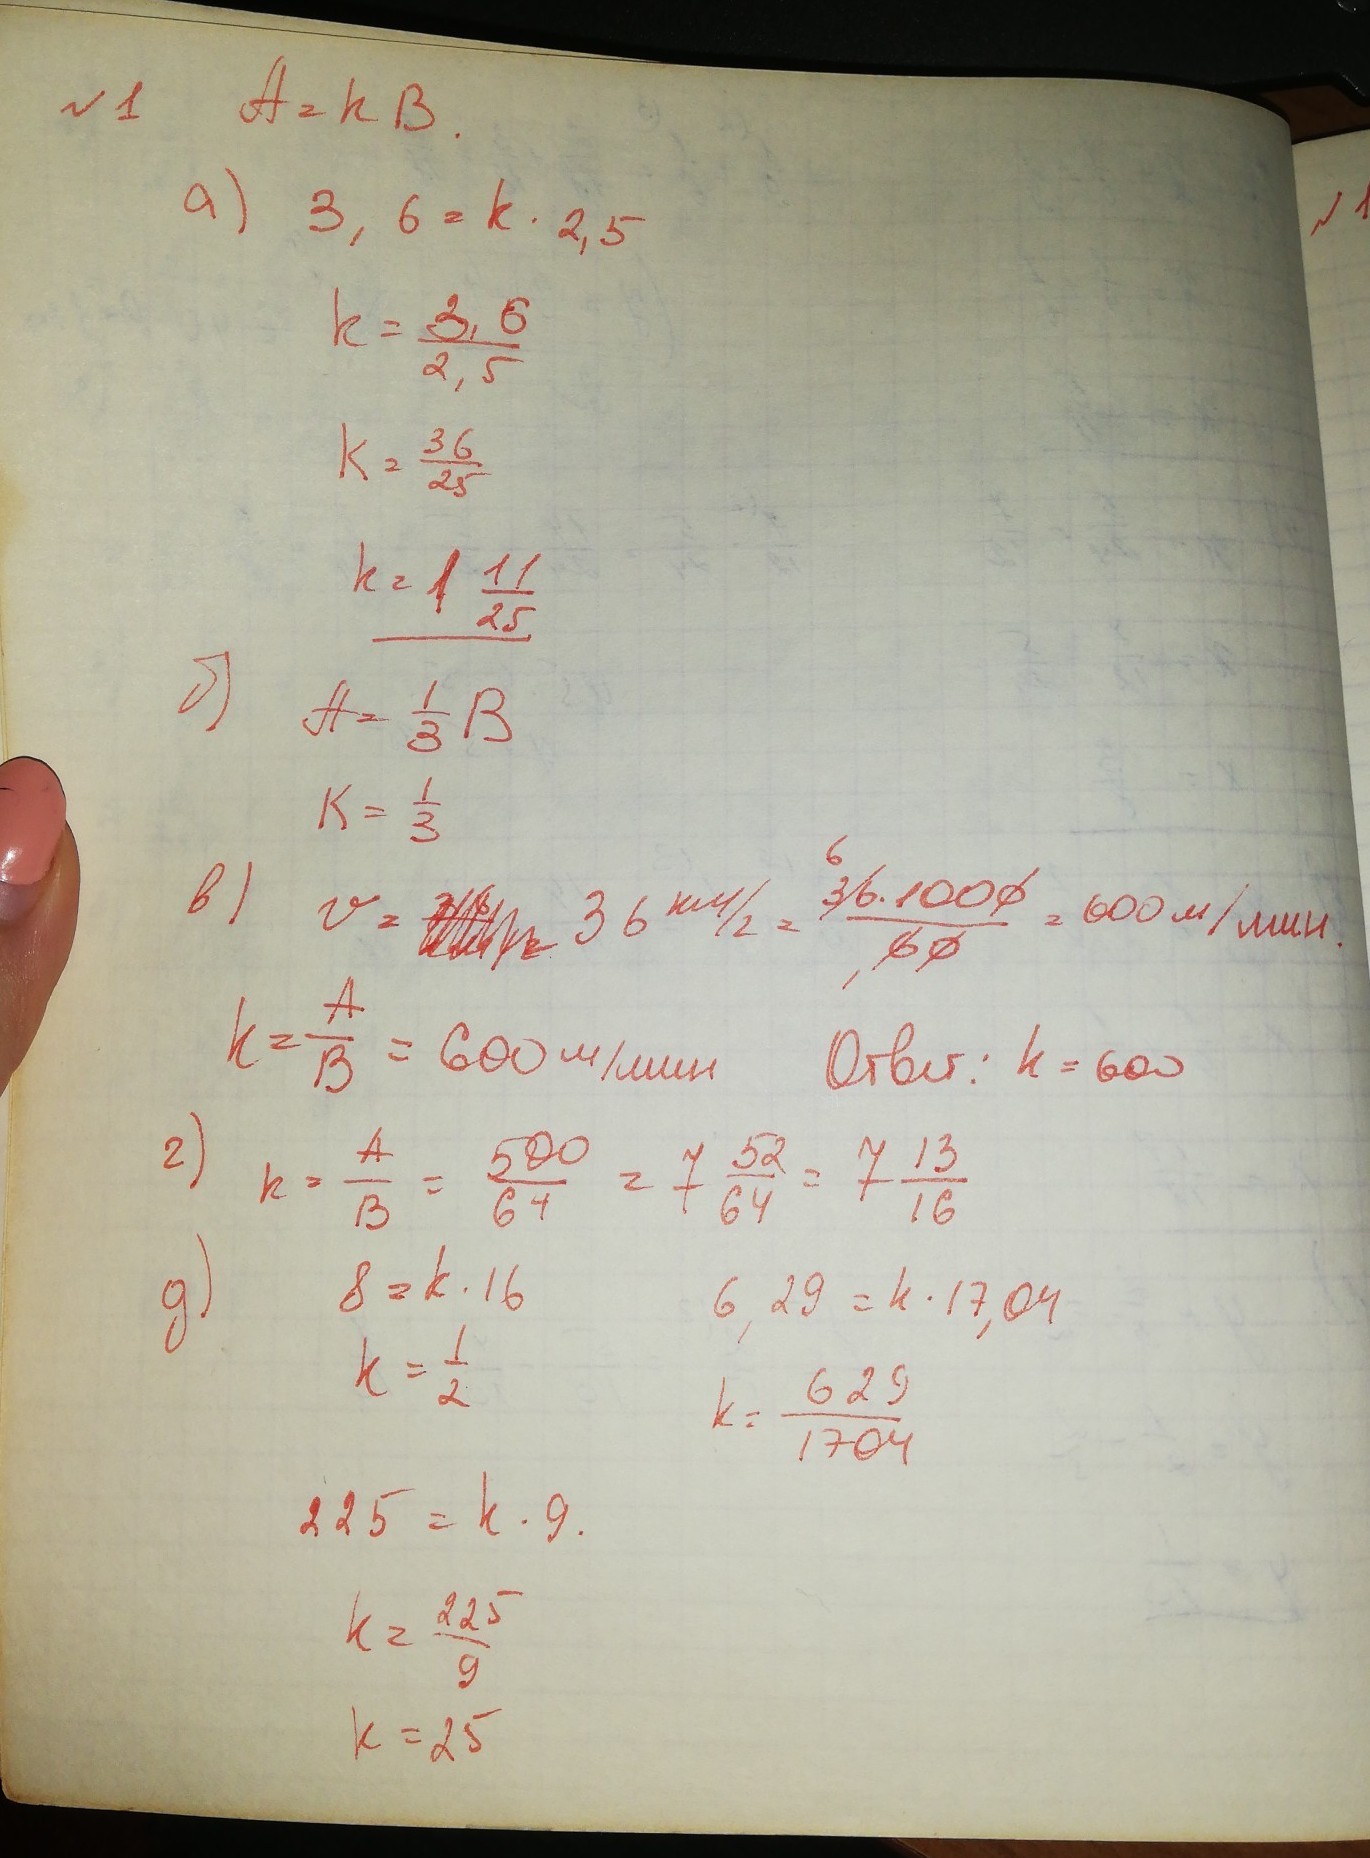 №1 A = k B.
а) 3,6 = k · 2,5
k = 3,6/2,5
k = 36/25
k = 1 11/25
б) A = 1/3 B
K = 1/3
в) v = 36 км/г = 36·1000/60 = 600 м/мин.
6
k = A/B = 600 м/мин Ответ: k = 600
г) k = A/B = 500/64 = 7 52/64 = 7 13/16
д) 8 = k · 16 6,29 = k · 17,04
k = 1/2 k = 629/1704
225 = k · 9.
k = 225/9
k = 25
№1